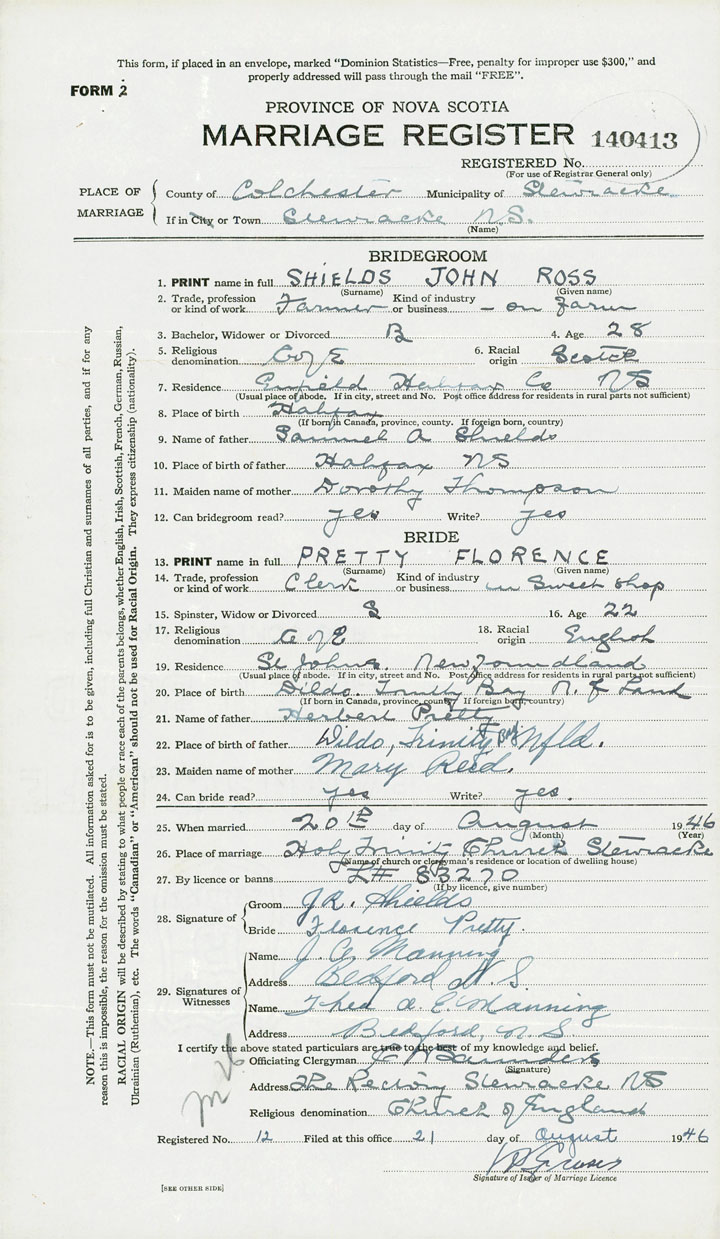 This form, if placed in an envelope, marked "Dominion Statistics—Free, penalty for improper use $300," and
properly addressed will pass through the mail "FREE".
FORM 2
PROVINCE OF NOVA SCOTIA
MARRIAGE REGISTER 140413
REGISTERED No.
(For use of Registrar General only)
PLACE OF MARRIAGE
County of Colchester Municipality of Stewiacke
If in City or Town Stewiacke N.S.
(Name)
BRIDEGROOM
1. PRINT name in full SHIELDS JOHN ROSS
(Surname) (Given name)
2. Trade, profession or kind of work Farmer Kind of industry or business - on farm
3. Bachelor, Widower or Divorced B 4. Age 28
5. Religious denomination C of E 6. Racial origin Scotch
7. Residence Enfield Halifax Co NS
(Usual place of abode. If in city, street and No. Post office address for residents in rural parts not sufficient)
8. Place of birth Halifax
(If born in Canada, province, county. If foreign born, country)
9. Name of father Samuel A Shields
10. Place of birth of father Halifax NS
11. Maiden name of mother Dorothy Thompson
12. Can bridegroom read? yes Write? yes
BRIDE
13. PRINT name in full PRETTY FLORENCE
(Surname) (Given name)
14. Trade, profession or kind of work Clerk Kind of industry or business in Sweet shop
15. Spinster, Widow or Divorced S 16. Age 22
17. Religious denomination C of E 18. Racial origin English
19. Residence St Johns. Newfoundland
(Usual place of abode. If in city, street and No. Post office address for residents in rural parts not sufficient)
20. Place of birth Dildo. Trinity Bay N. f Land
(If born in Canada, province, county. If foreign born, country)
21. Name of father Herbert Pretty
22. Place of birth of father Dildo, Trinity Nfld.
23. Maiden name of mother Mary Reid.
24. Can bride read? yes Write? yes.
25. When married 20th day of August 1946
(Month) (Year)
26. Place of marriage Holy Trinity Church Stewiacke
(Name of church or clergyman's residence or location of dwelling house)
27. By licence or banns L# 83270
(If by licence, give number)
28. Signature of
Groom J.R. Shields
Bride Florence Pretty.
29. Signatures of Witnesses
Name J. C. Manning
Address Bedford N.S.
Name Thea A. E. Manning
Address Bedford, N.S
I certify the above stated particulars are true to the best of my knowledge and belief.
Officiating Clergyman Saunders
(Signature)
Address The Rectory Stewiacke NS
Religious denomination Church of England
Registered No. 12 Filed at this office 21 day of August 1946
Signature of Issuer of Marriage Licence
[SEE OTHER SIDE]
NOTE.—This form must not be mutilated. All information asked for is to be given, including full Christian and surnames of all parties, and if for any
reason this is impossible, the reason for the omission must be stated.
RACIAL ORIGIN will be described by stating to what people or race each of the parents belongs, whether English, Irish, Scottish, French, German, Russian,
Ukrainian (Ruthenian), etc. The words "Canadian" or "American" should not be used for Racial Origin. They express citizenship (nationality).